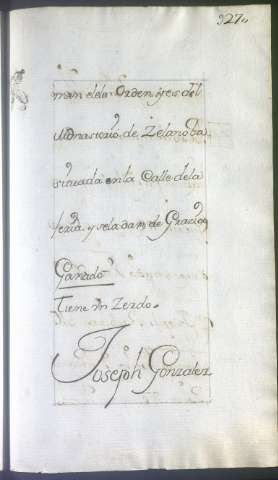 327.
man el dela Orden y es del
Monasterio, de Zelanoba
situada en la Calle dela
feria y sela dan de Gracia
Ganado
Tiene Vn Zerdo.
Joseph Gonzalez